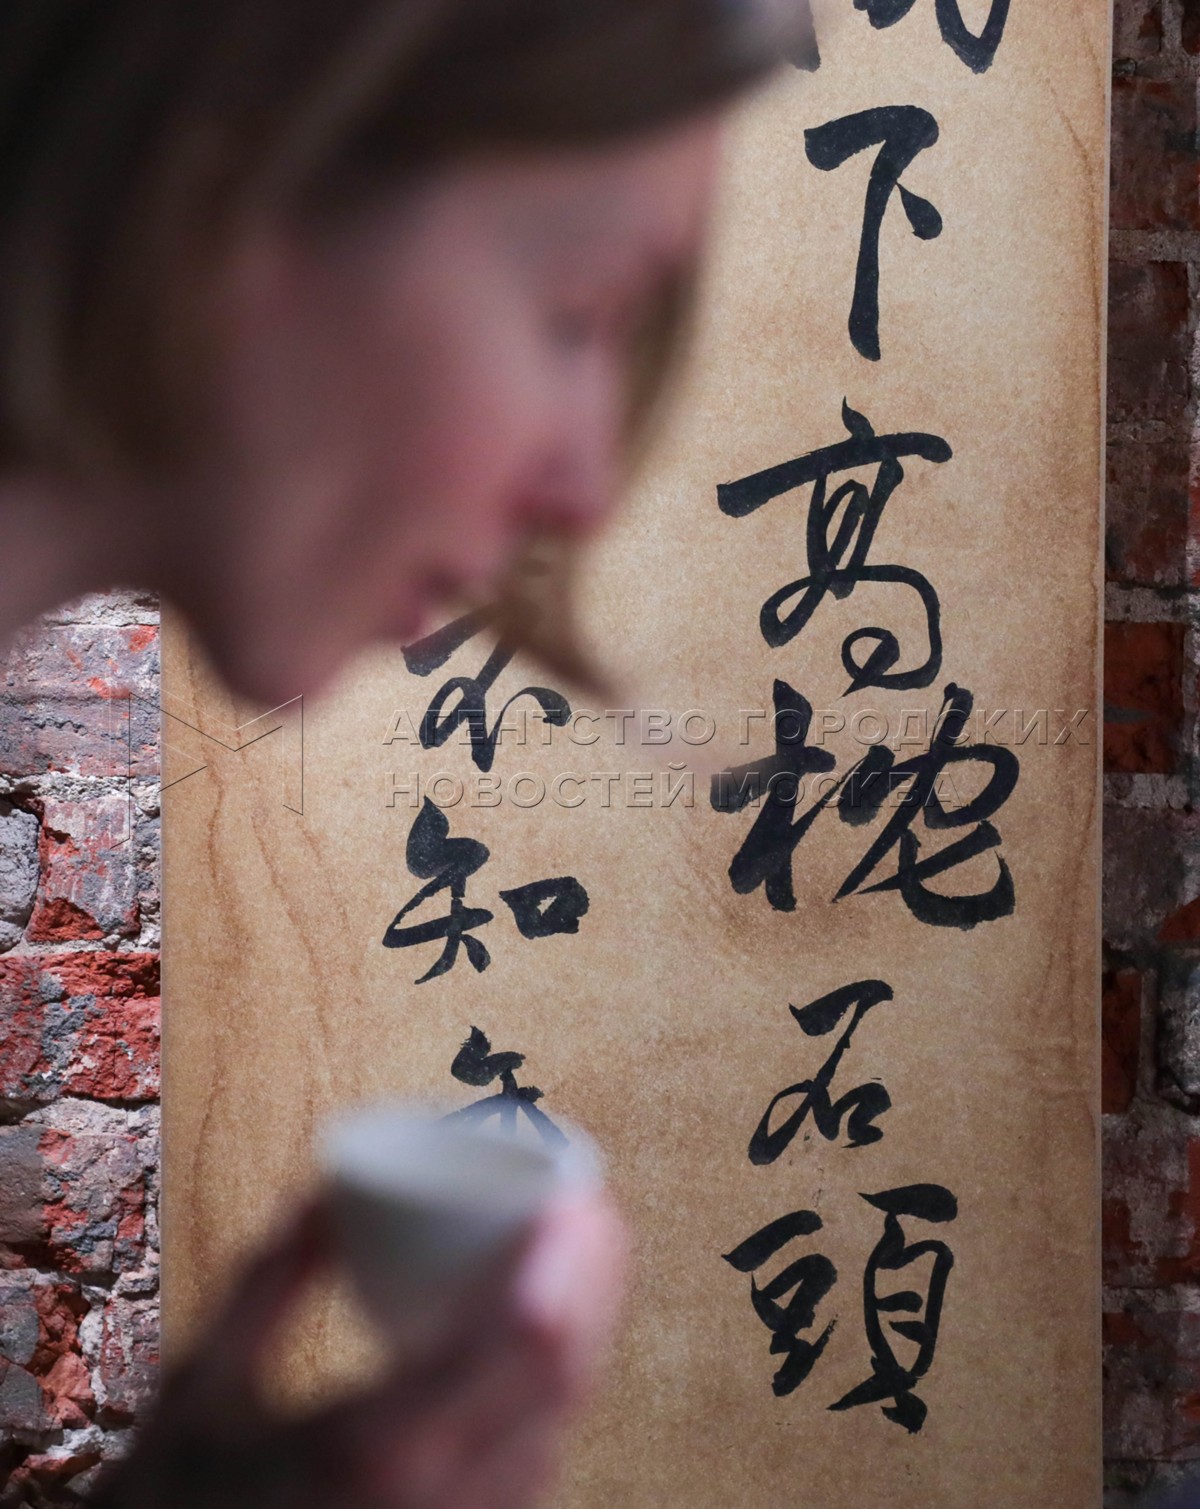 下高枕石頭
不知年
АГЕНТСТВО ГОРОДСКИХ
НОВОСТЕЙ МОСКВА